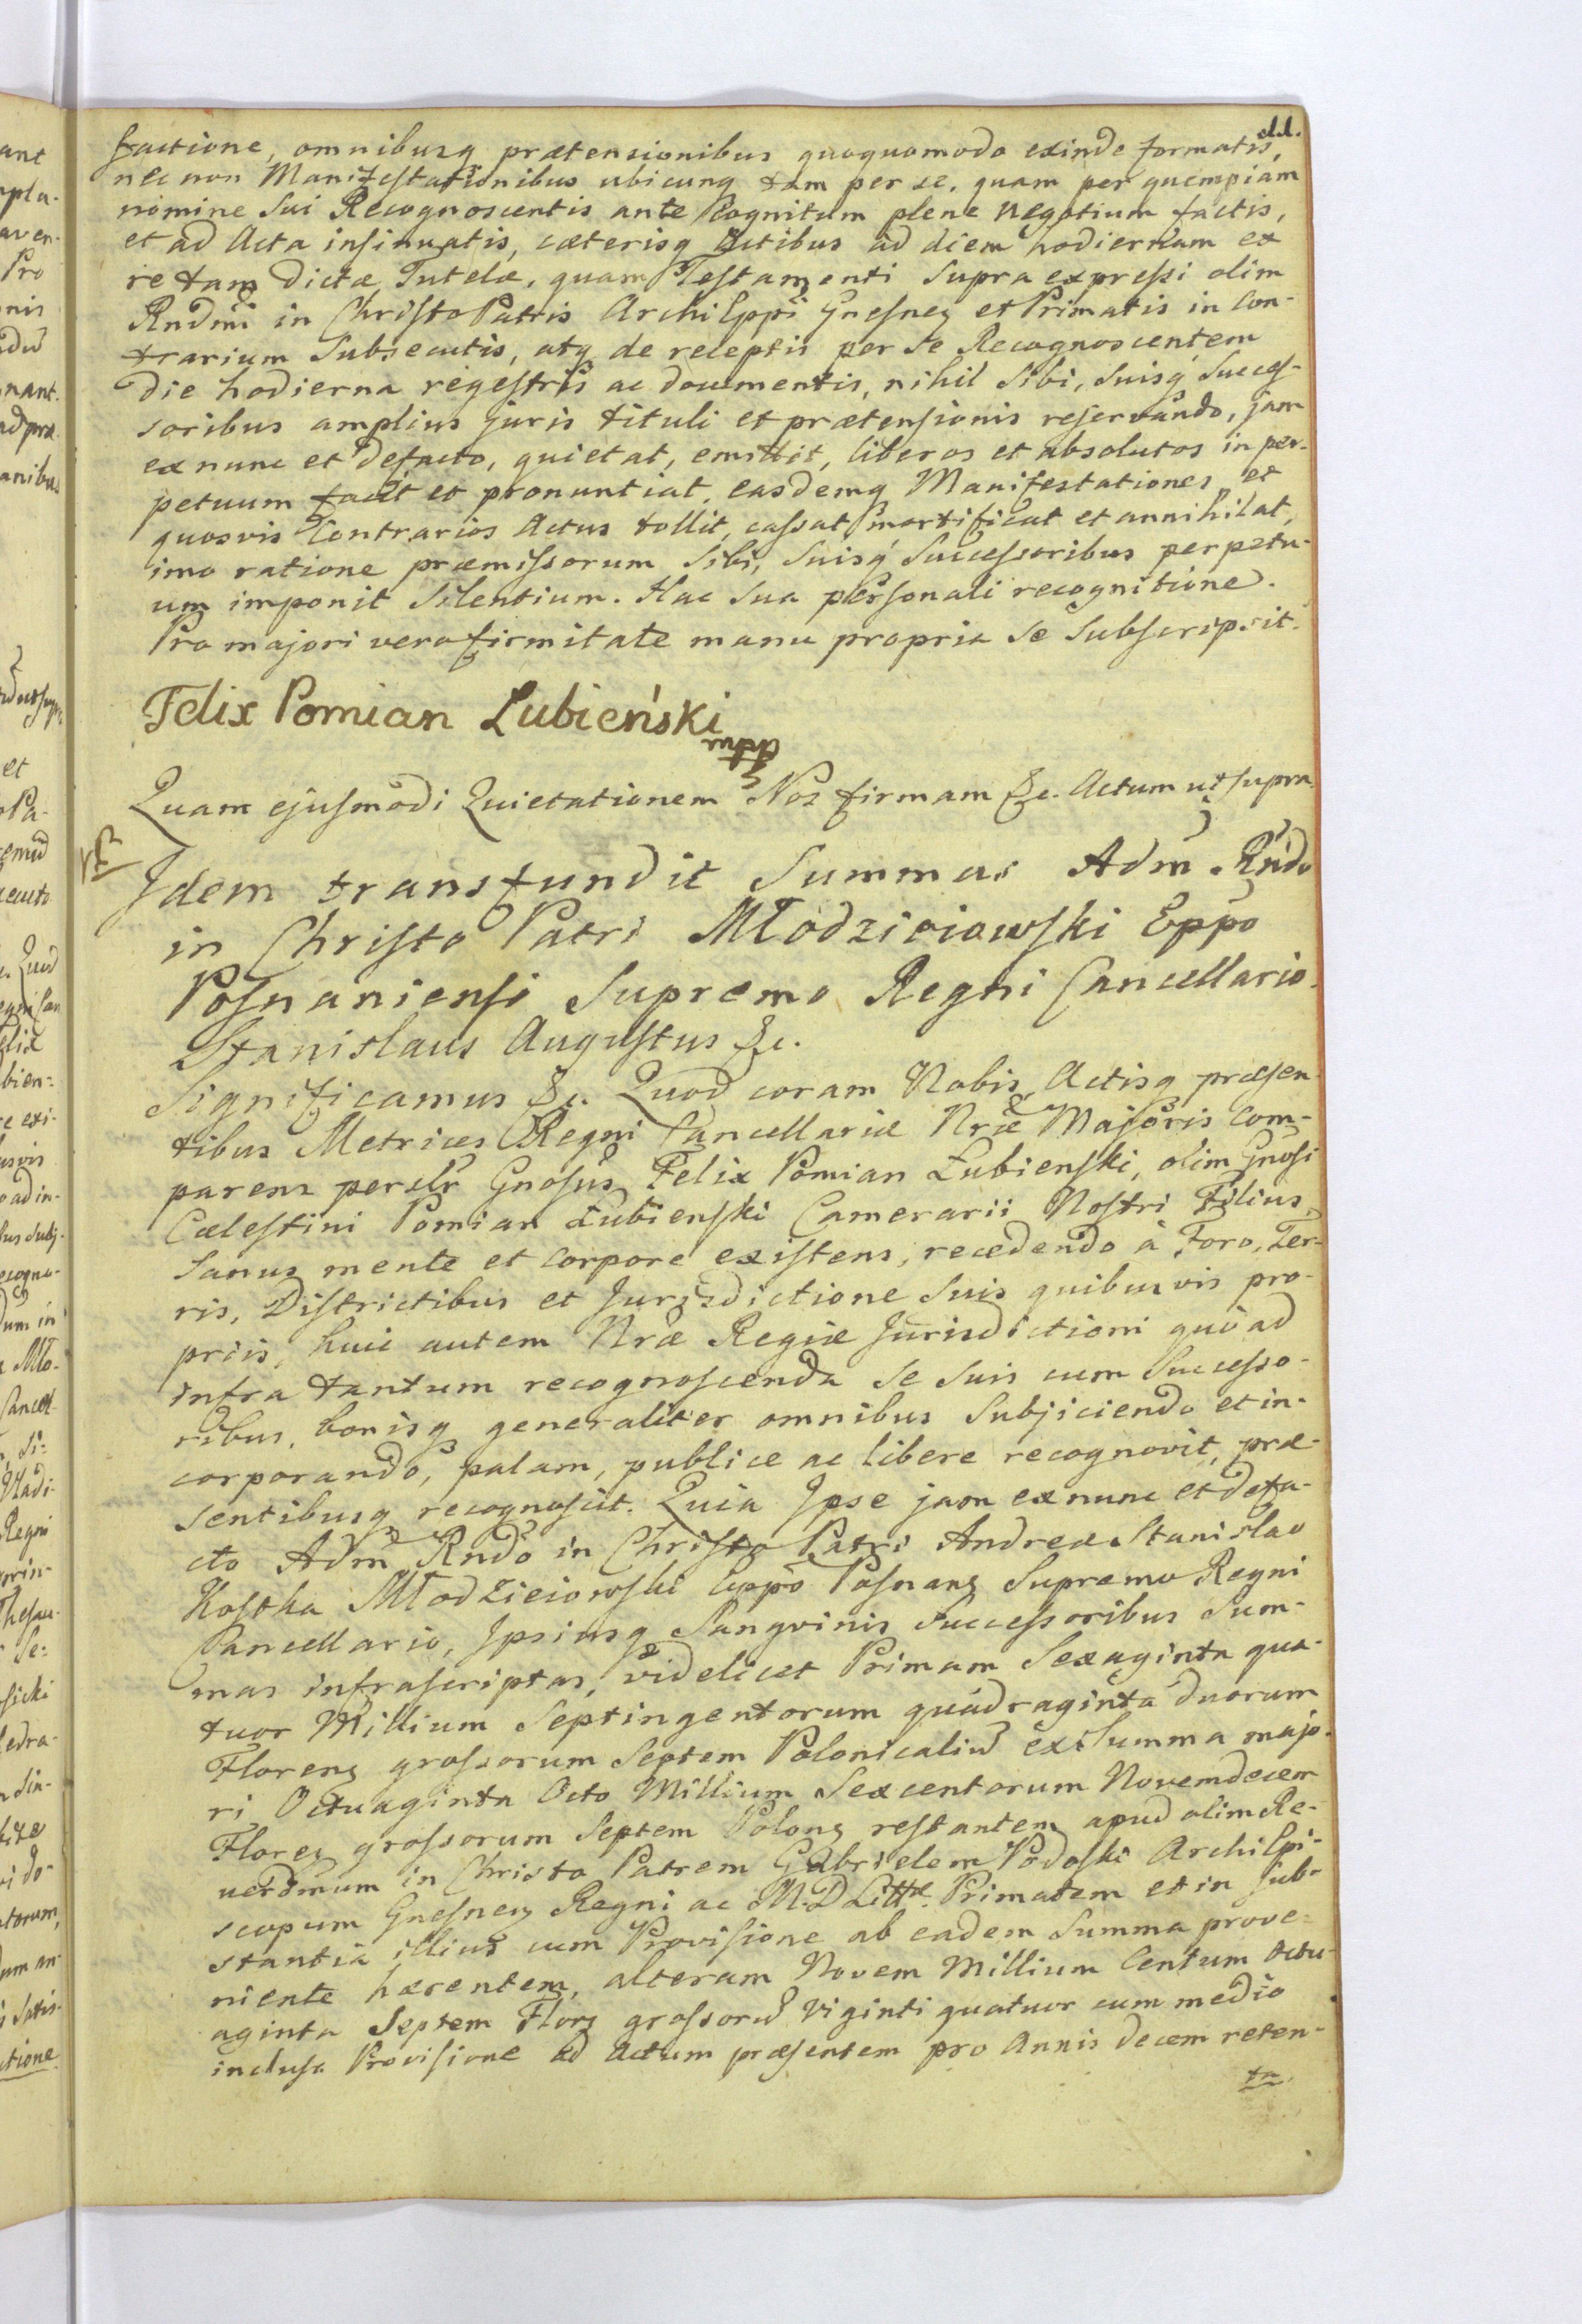 11.
factione, omnibusq prætensionibus quoquomodo exinde formatis,
nec non Manifestationibus ubicunq tam per se, quam per quempiam
nomine Sui Recognoscentis ante Cognitum plene Negotium factis,
et ad Acta insinuatis, cæterisq Actibus ad diem hodiernam ex
re tam dictæ Tutelæ, quam Testamenti Supra expressi olim
Rndmi in Christo Patris Archi Eppi Gnesnen et Primatis in Con-
trarium Subsecutis, atq de receptis per Se Recognoscentem
die hodierna regestris ac documentis, nihil Sibi, Suisq Succes-
soribus amplius juris tituli et prætensionis reservando, jam
ex nunc et defacto, quietat, emittit, liberos et absolutos in per-
petuum facit et pronuntiat, easdemq Manifestationes et
quosvis Contrarios Actus tollit, cassat mortificat et annihilat,
imo ratione præmissorum Sibi, Suisq Successoribus perpetu-
um imponit Silentium. Hac Sua personali recognitione.
Pro majori vero firmitate manu propria Se Subscripsit.
Felix Pomian Łubieński
Quam ejusmodi Quietationem Nos firmam &c. Actum ut supra
Idem transfundit Summas Adm Rndo
in Christo Patri Młodzieiowski Eppo
Posnaniensi Supremo Regni Cancellario.
Stanislaus Augustus &c.
Significamus &c. Quod coram Nobis, Actisq præsen-
tibus Metrices Regni Cancellariæ Nræ Majoris Com-
parens persłr Gnosus Felix Pomian Łubienski, olim Gnosi
Cælestini Pomian Łubienski Camerarii Nostri Filius,
Sanus mente et corpore existens, recedendo à Foro, Ter-
ris, Districtibus et Jurisdictione Suis quibusvis pro-
priis, huic autem Nræ Regiæ Jurisdictioni quó ad
infra tantum recognoscenda Se Suis cum Successo-
ribus, bonisq generaliter omnibus Subjiciendo et in-
corporando, palam, publice ac libere recognovit, præ-
sentibusq recognoscit. Quia Ipse jam ex nunc et defa-
cto Adm Rndo in Christo Patri Andreæ Stanislao
Kostka Młodzieiowski Eppo Posnang Supremo Regni
Cancellario, Ipsiusq Sangvinis Successoribus Sum-
mas infrascriptas, videlicet Primam Sexaginta qua-
tuor Millium Septingentorum quadraginta duorum
Floreng grossorum Septem Polonicaliu ex Summa majo-
ri Octuaginta Octo Millium Sexcentorum Novemdecem
Floreg grossorum Septem Polong restantem apud olim Re-
verdmum in Christo Patrem Gabrielem Podoski Archi Epi-
scopum Gnesneng Regni ac M. D. Litt. Primatem et in sub-
stantia illius cum Provisione ab eadem Summa prove-
niente hærentem, alteram Novem Millium Centum Octu-
aginta Septem Florg grossoru Viginti quatuor cum medio
inclusa Provisione ad actum præsentem pro Annis decem reten-
ta